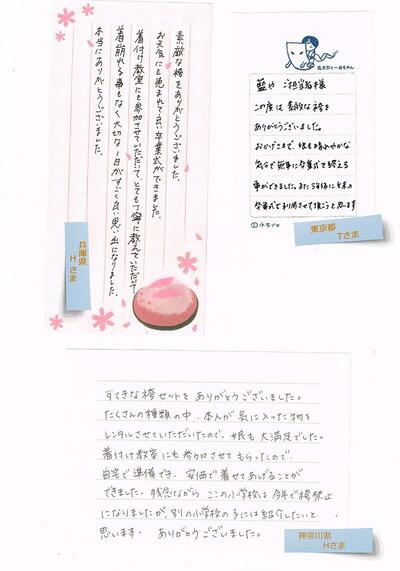 素敵な袴をありがとうございました。
お天気にも恵まれて良い卒業式ができました。
着付け教室にも参加させていただいて、とても丁寧に教えていただいて
着崩れる事もなく大切な1日がすごく良い思い出になりました。
本当にありがとうございました。
兵庫県
Hさま
藍や ご担当者様
この度は素敵な袴を
ありがとうございました。
おかげさまで、娘も晴れやかな
気分で無事に卒業式を終える
事ができました。また3年後に
卒業式で利用させて頂こうと思います
東京都
Tさま
すてきな袴セットを ありがとうございました。
たくさんの種類の中、本人が気に入った物を
レンタルさせていただいたので、娘も大満足でした。
着付け教室にも参加させてもらったので、
自宅で準備でき、安価で着せてあげることが
できました。残念ながら この小学校は今年で袴禁止
になりましたが、別の小学校の子には紹介したいと
思います。 ありがとうございました。
神奈川県
Hさま